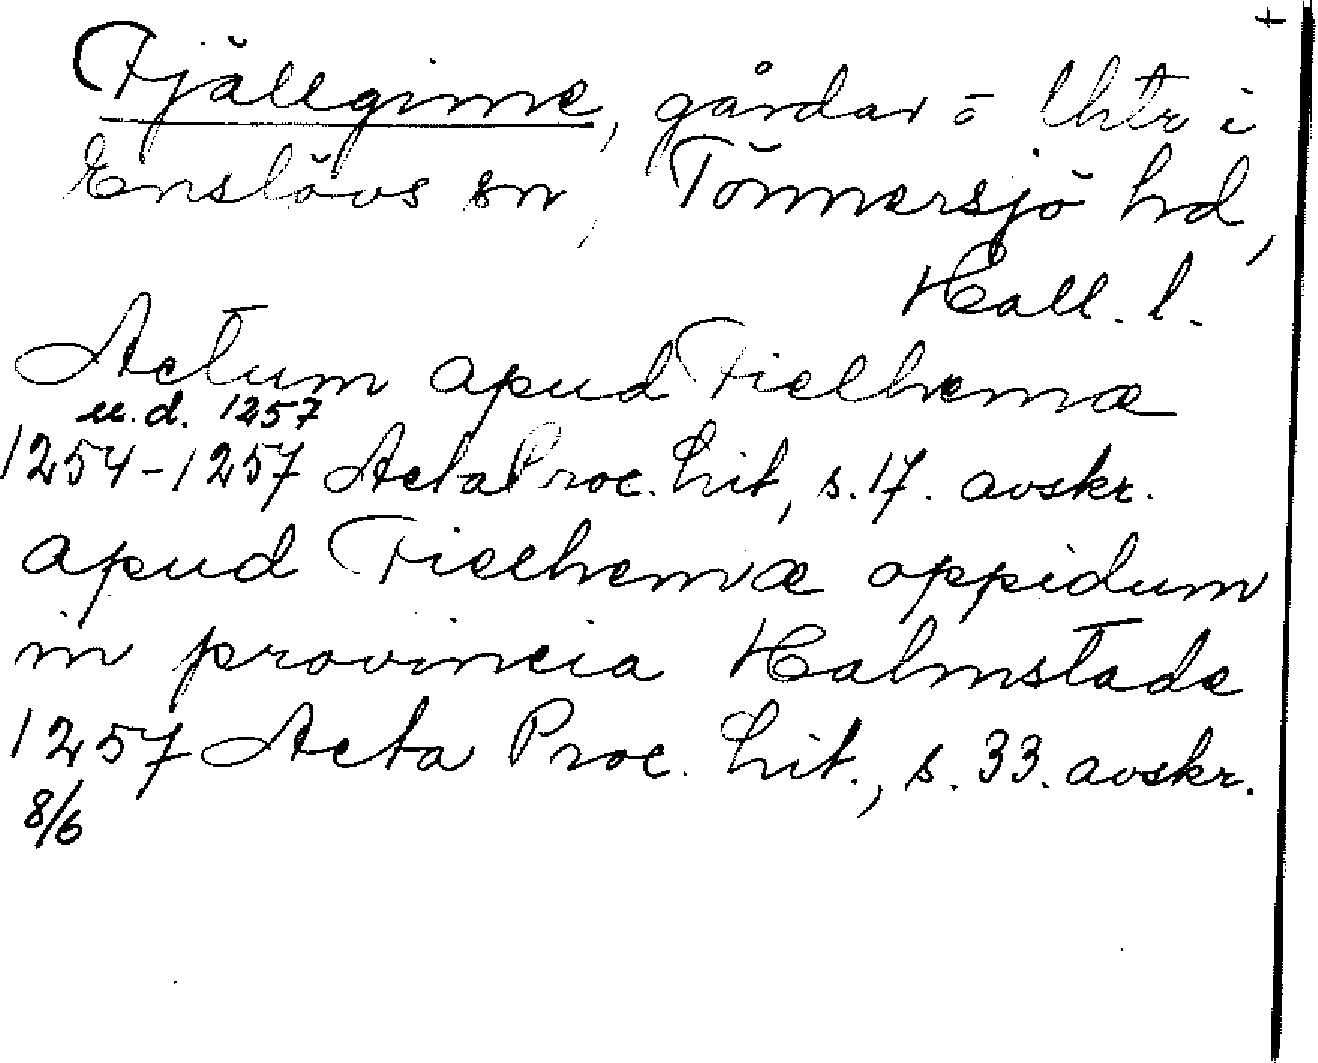 +
Fjällgime, gårdar o lhtr i
Enslövs sn, Tönnersjö hd,
Hall. l.
Actum apud Fielhemæ
u.d. 1257
1254-1257 Acta Proc. Lit, s. 17. avskr.
apud Fielhemæ oppidum
in provincia Halmstade
1257 Acta Proc. Lit., s. 33. avskr.
8/6